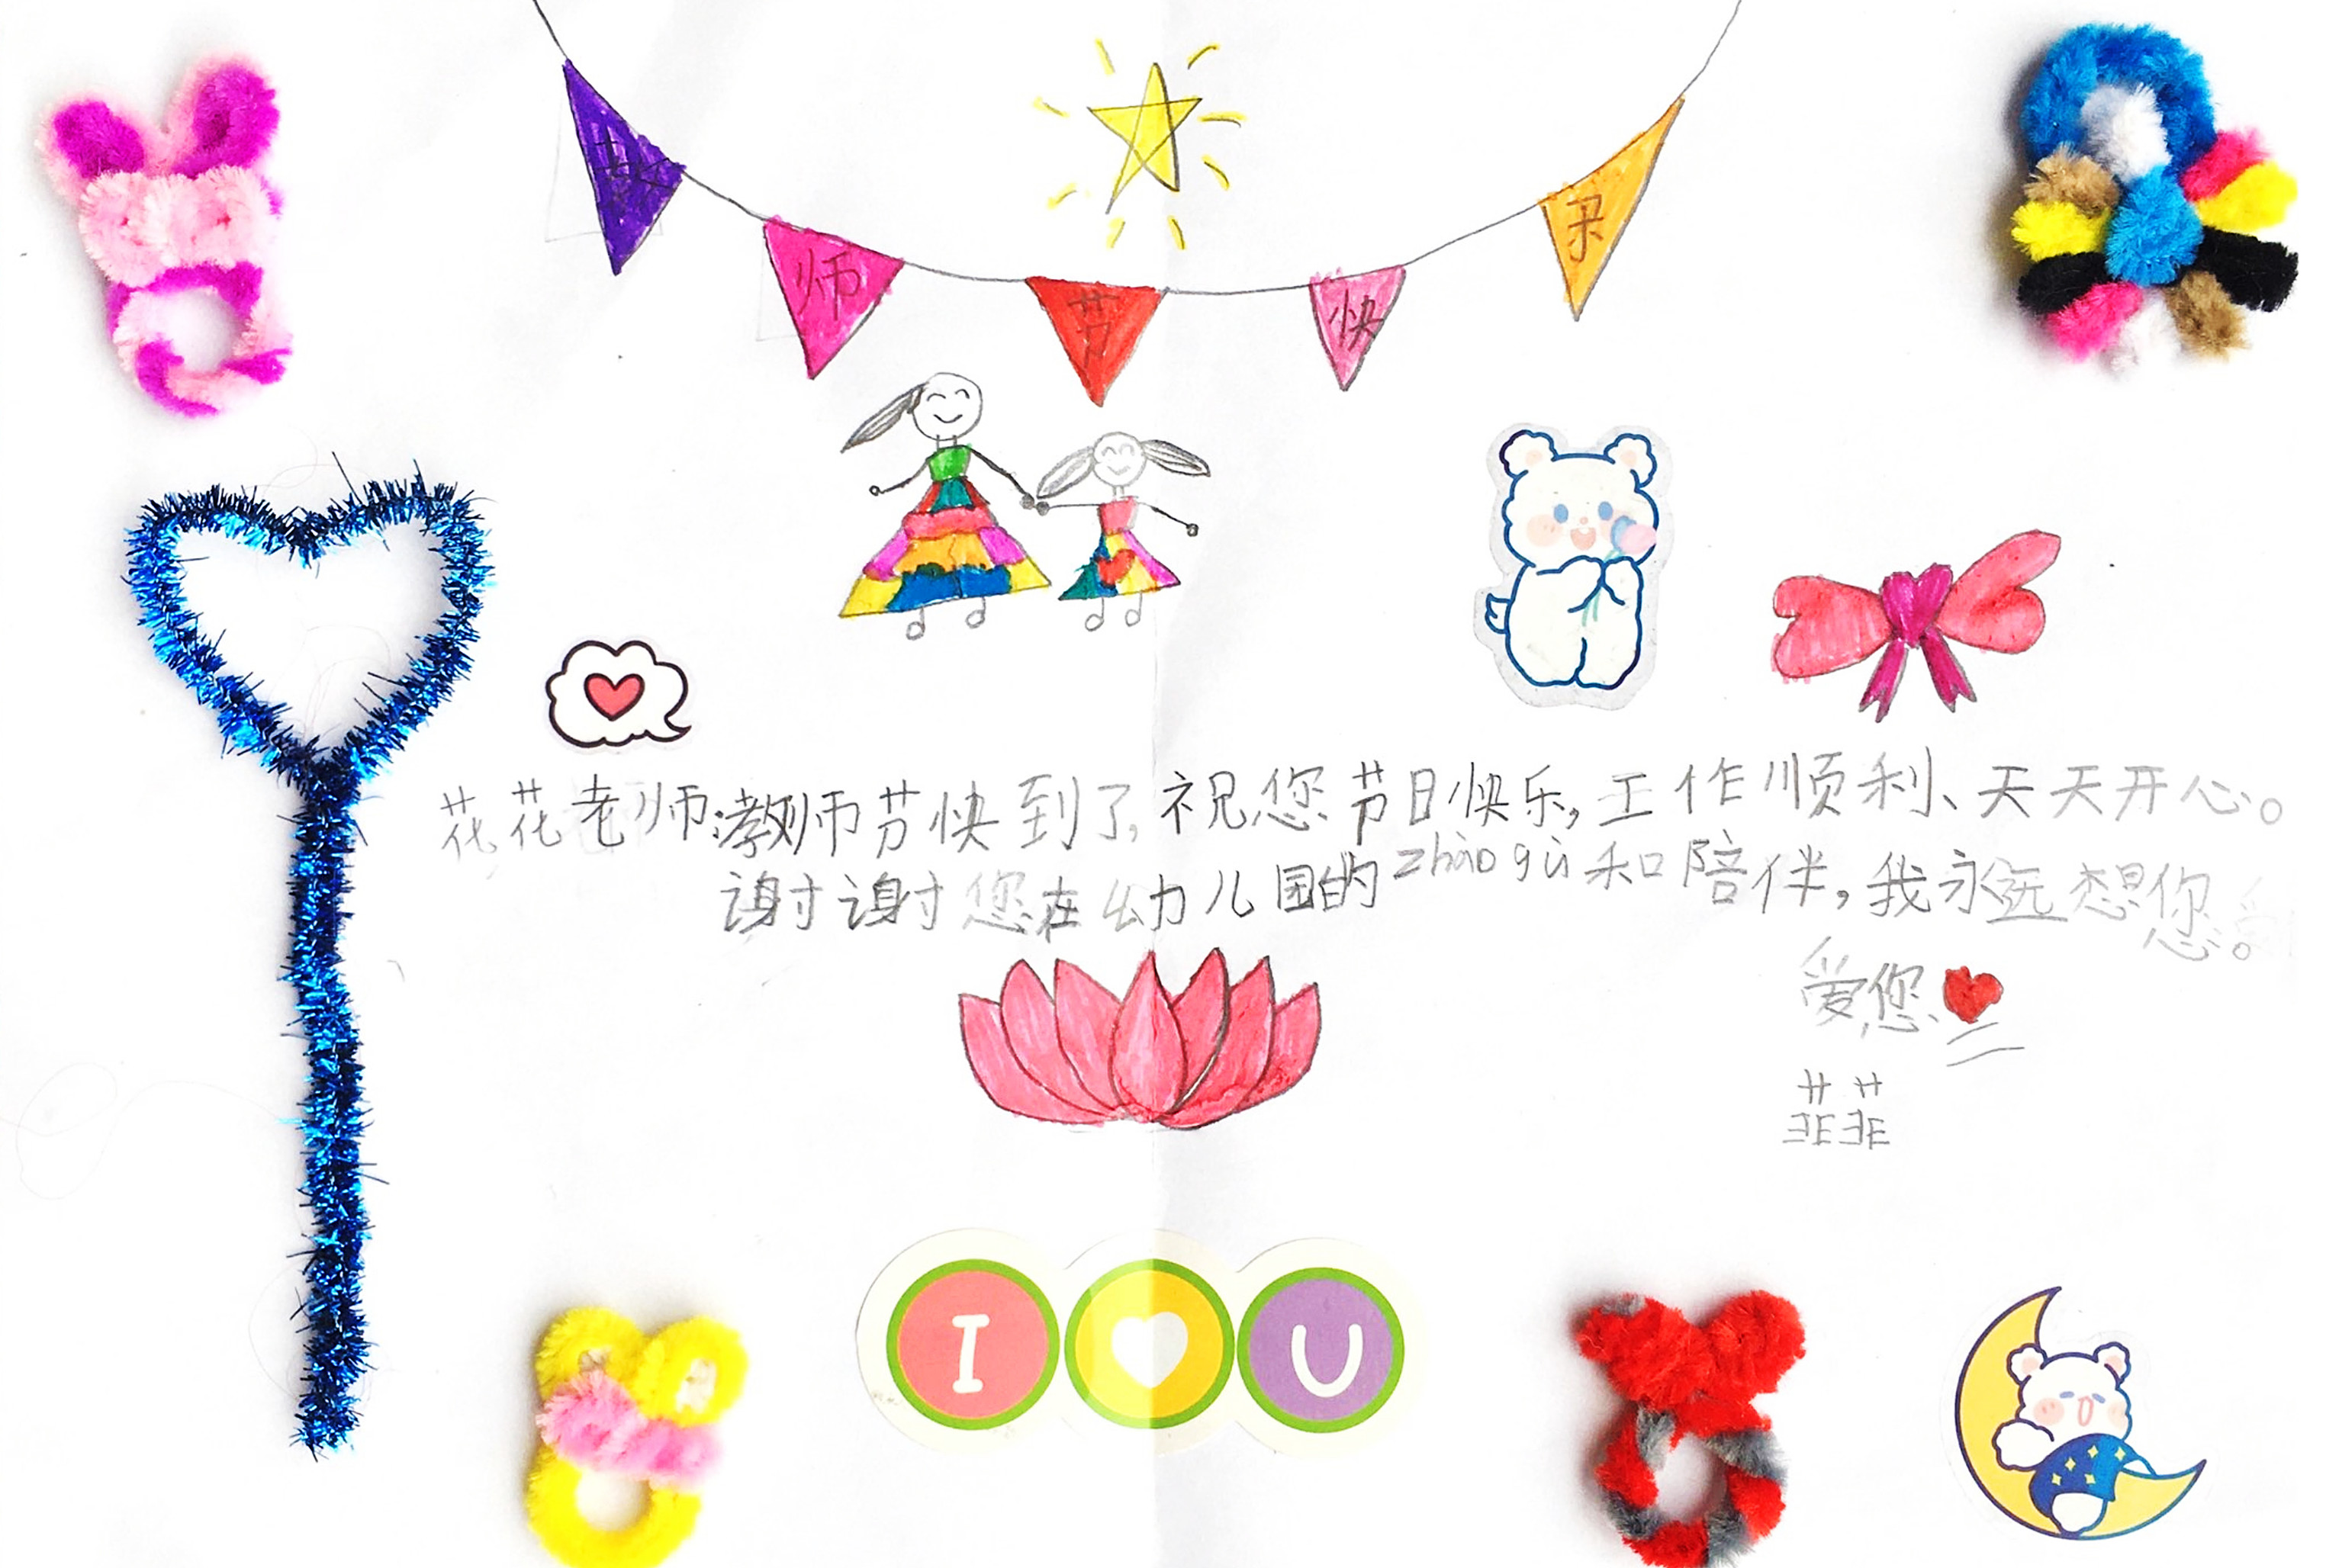 教师节快乐
花花老师:教师节快到了,祝您节日快乐,工作顺利、天天开心。
谢谢您在幼儿园的zhào gù和陪伴,我永远想您。
爱您
菲菲
I U